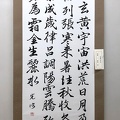 玄黄宇宙洪荒日月
列張寒來暑往秋收冬
成歲律呂調陽雲騰
為霜金生麗水